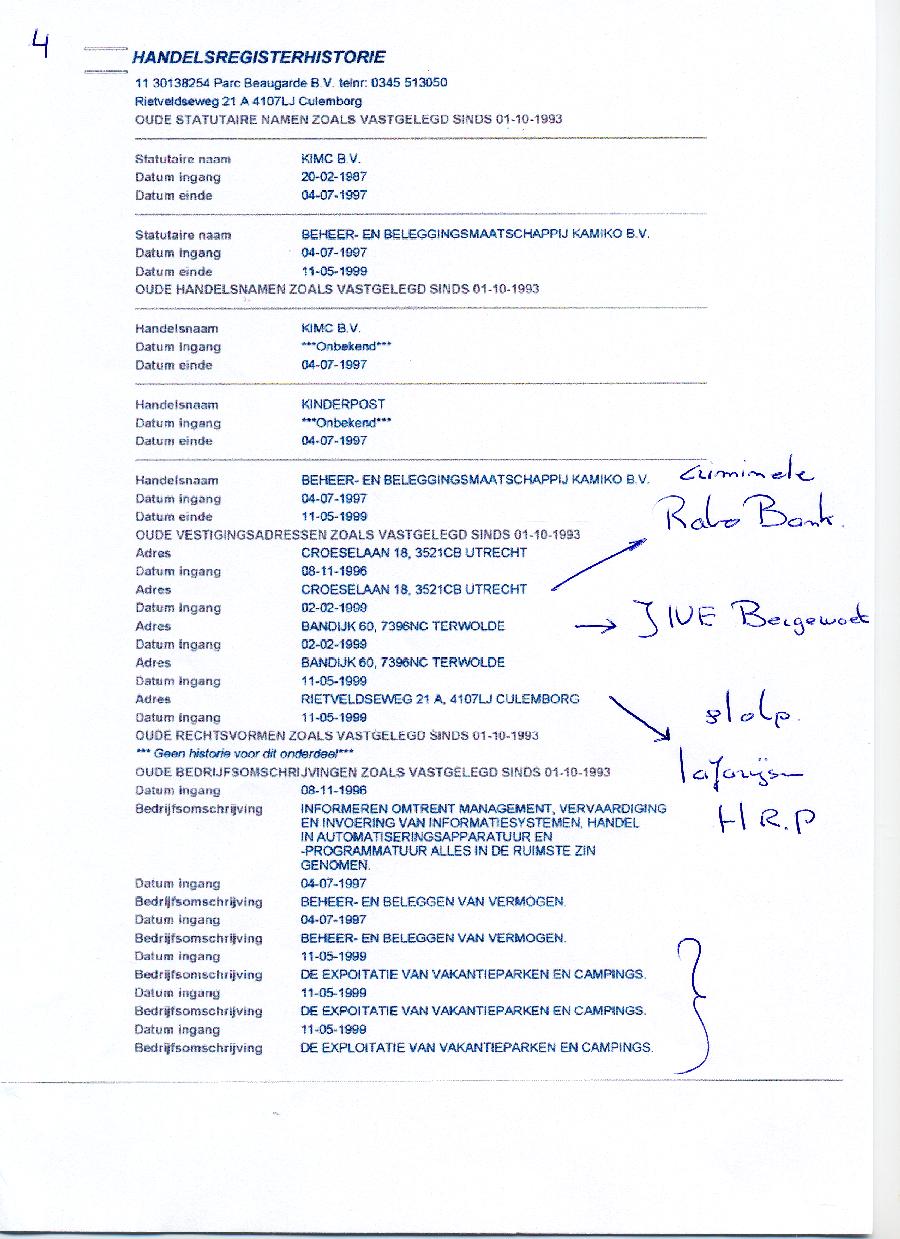 4
HANDELSREGISTERHISTORIE
11 30138254 Parc Beaugarde B.V. telnr: 0345 513050
Rietveldseweg 21 A 4107LJ Culemborg
OUDE STATUTAIRE NAMEN ZOALS VASTGELEGD SINDS 01-10-1993
Statutaire naam KIMC B.V.
Datum ingang 20-02-1987
Datum einde 04-07-1997
Statutaire naam BEHEER- EN BELEGGINGSMAATSCHAPPIJ KAMIKO B.V.
Datum ingang 04-07-1997
Datum einde 11-05-1999
OUDE HANDELSNAMEN ZOALS VASTGELEGD SINDS 01-10-1993
Handelsnaam KIMC B.V.
Datum ingang ***Onbekend***
Datum einde 04-07-1997
Handelsnaam KINDERPOST
Datum ingang ***Onbekend***
Datum einde 04-07-1997
Handelsnaam BEHEER- EN BELEGGINGSMAATSCHAPPIJ KAMIKO B.V. criminele
Datum ingang 04-07-1997
Datum einde 11-05-1999 Rabo Bank.
OUDE VESTIGINGSADRESSEN ZOALS VASTGELEGD SINDS 01-10-1993
Adres CROESELAAN 18, 3521CB UTRECHT
Datum ingang 08-11-1996
Adres CROESELAAN 18, 3521CB UTRECHT
Datum ingang 02-02-1999
Adres BANDIJK 60, 7396NC TERWOLDE
Datum ingang 02-02-1999
Adres BANDIJK 60, 7396NC TERWOLDE
Datum ingang 11-05-1999
Adres RIETVELDSEWEG 21 A, 4107LJ CULEMBORG
Datum ingang 11-05-1999
OUDE RECHTSVORMEN ZOALS VASTGELEGD SINDS 01-10-1993
*** Geen historie voor dit onderdeel***
OUDE BEDRIJFSOMSCHRIJVINGEN ZOALS VASTGELEGD SINDS 01-10-1993
Datum ingang 08-11-1996
Bedrijfsomschrijving INFORMEREN OMTRENT MANAGEMENT, VERVAARDIGING
EN INVOERING VAN INFORMATIESYSTEMEN, HANDEL H R.P
IN AUTOMATISERINGSAPPARATUUR EN
-PROGRAMMATUUR ALLES IN DE RUIMSTE ZIN
GENOMEN.
Datum ingang 04-07-1997
Bedrijfsomschrijving BEHEER- EN BELEGGEN VAN VERMOGEN.
Datum ingang 04-07-1997
Bedrijfsomschrijving BEHEER- EN BELEGGEN VAN VERMOGEN.
Datum ingang 11-05-1999
Bedrijfsomschrijving DE EXPOITATIE VAN VAKANTIEPARKEN EN CAMPINGS.
Datum ingang 11-05-1999
Bedrijfsomschrijving DE EXPOITATIE VAN VAKANTIEPARKEN EN CAMPINGS.
Datum ingang 11-05-1999
Bedrijfsomschrijving DE EXPLOITATIE VAN VAKANTIEPARKEN EN CAMPINGS.